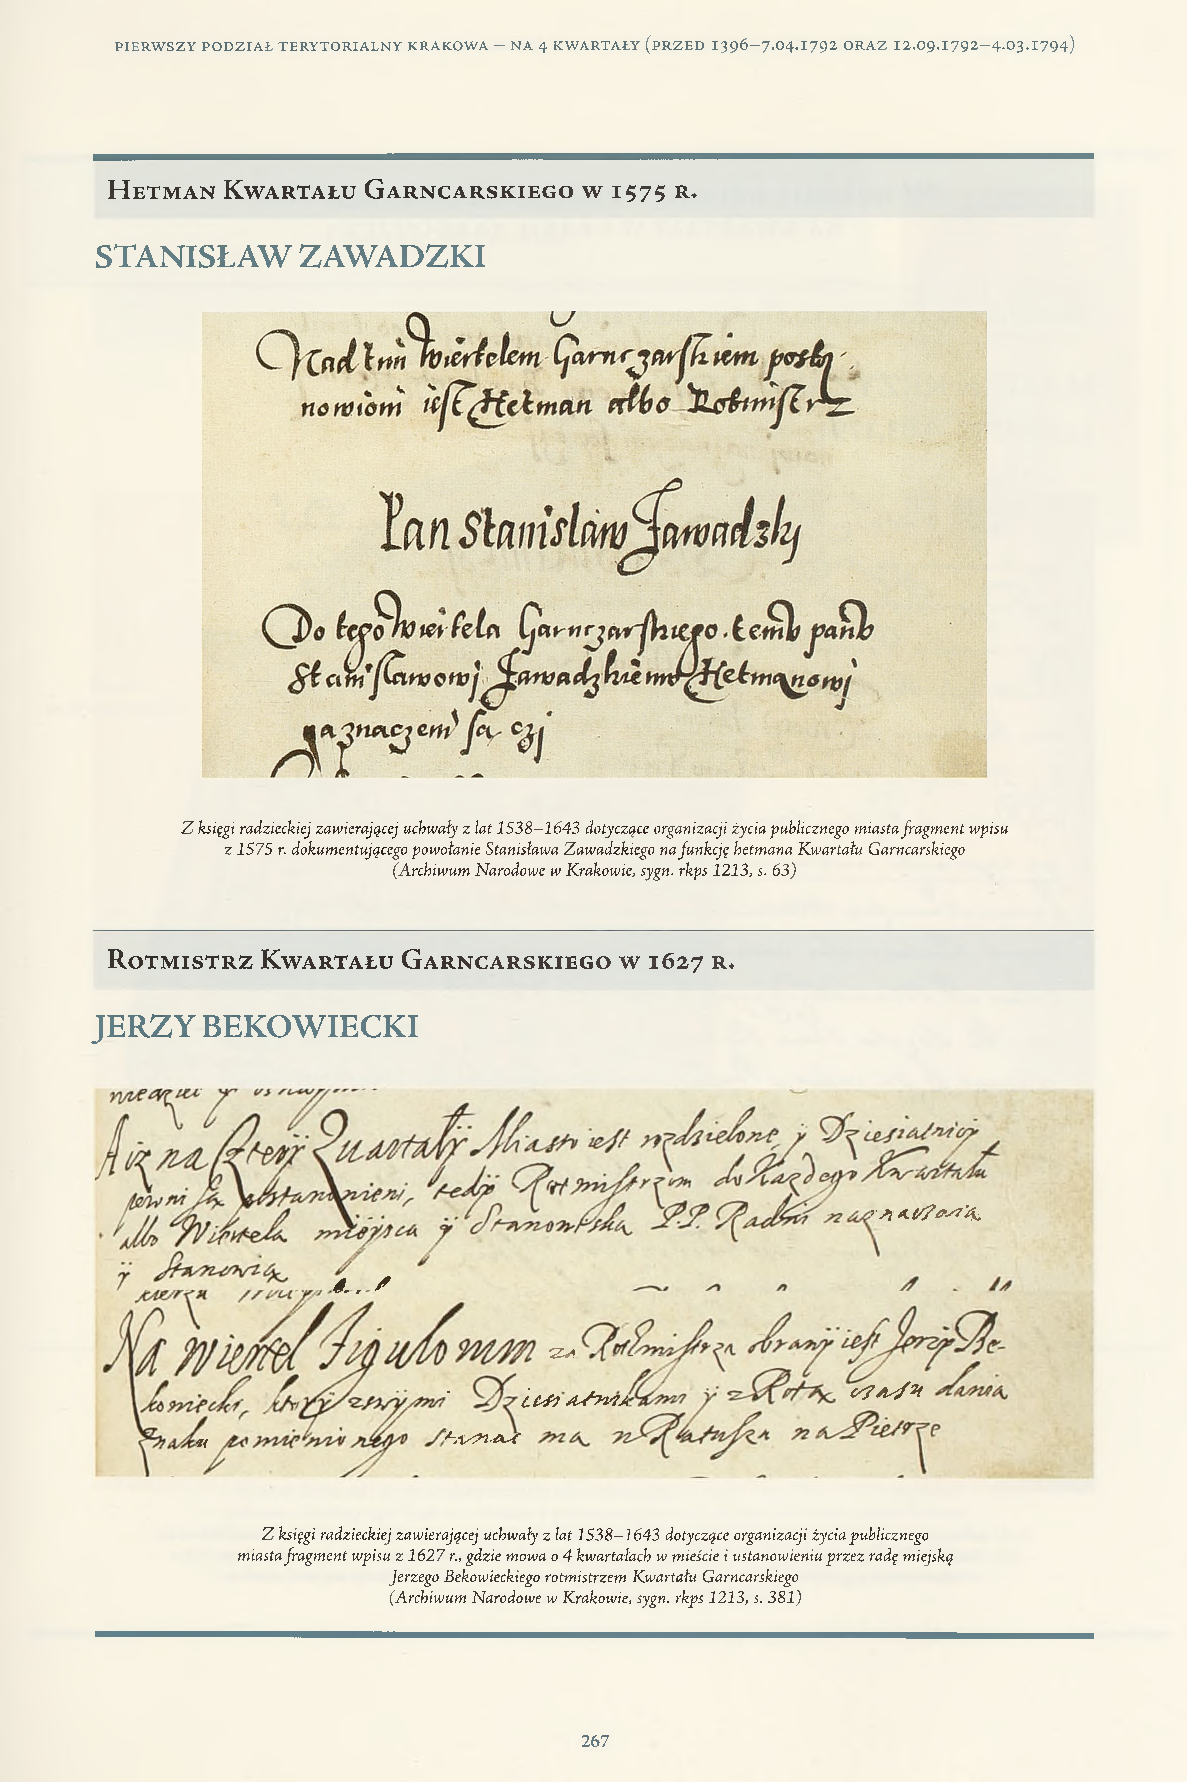 PIERWSZY PODZIAŁ TERYTORIALNY KRAKOWA – NA 4 KWARTAŁY (PRZED 1396–7.04.1792 ORAZ 12.09.1792–4.03.1794)
HETMAN KWARTAŁU GARNCARSKIEGO W 1575 R.
STANISŁAW ZAWADZKI
Nad tim wiertelem Garnczarskiem posta-
nowioni iest Hetman albo Rotmistrz
Pan Stanislaw Zawadzki
Do tego wiertela Garnczarskiego temu panu
Stanislawowi Zawadzkiemu Hetmanowi
naznaczeni są czi
Z księgi radzieckiej zawierającej uchwały z lat 1538–1643 dotyczące organizacji życia publicznego miasta fragment wpisu
z 1575 r. dokumentującego powołanie Stanisława Zawadzkiego na funkcję hetmana Kwartału Garncarskiego
(Archiwum Narodowe w Krakowie, sygn. rkps 1213, s. 63)
ROTMISTRZ KWARTAŁU GARNCARSKIEGO W 1627 R.
JERZY BEKOWIECKI
A iz na Cztery Quartały Miasto iest rozdzielone, y Dziesiatnicy
pewni są postanowieni, tedy Rotmistrzom do Kazdego Kwartału
albo Wiertela mieysca y Stanowiska P.P. Radni naznaczaią
y Stanowią
Na wiertel Figulorum za Rotmistrza obrany iest Jerzy Be-
kowiecki, ktory zswymi Dziesiatnikami y z Rotą czasu dania
Znaku pomienionego stanac ma u Ratusza na Pietrze
Z księgi radzieckiej zawierającej uchwały z lat 1538–1643 dotyczące organizacji życia publicznego
miasta fragment wpisu z 1627 r., gdzie mowa o 4 kwartałach w mieście i ustanowieniu przez radę miejską
Jerzego Bekowieckiego rotmistrzem Kwartału Garncarskiego
(Archiwum Narodowe w Krakowie, sygn. rkps 1213, s. 381)
267